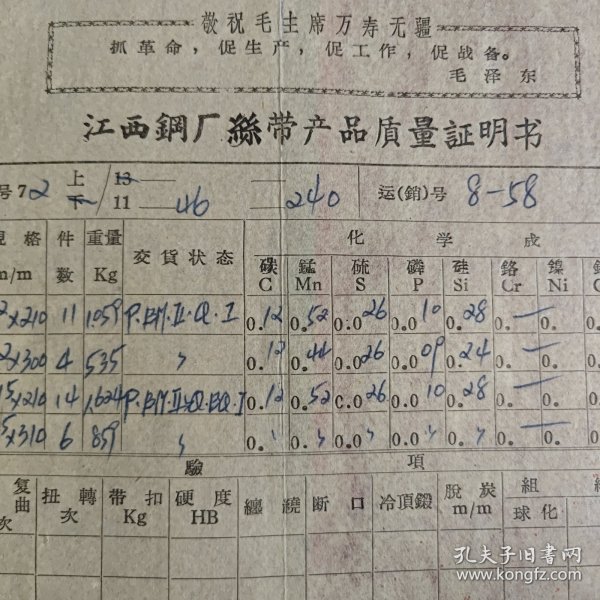 敬祝毛主席万寿无疆
抓革命，促生产，促工作，促战备。
毛泽东
江西鋼厂絲带产品质量証明书
号72 上/下 13/11 46 240 运(銷)号 8-58
規格 件 重量 交貨状态 化学成
m/m 数 Kg 碳 錳 硫 磷 硅 鉻 鎳
C Mn S P Si Cr Ni
2×210 11 1059 P.BM.II.Q.I 0.12 0.52 0.026 0.010 0.28 0.— 0.
2×300 4 535 〃 0.12 0.44 0.026 0.009 0.24 0.— 0.
5×210 14 1,624 0.12 0.52 0.026 0.010 0.28 0.— 0.
5×310 6 859 〃 0.〃 0.〃 0.0〃 0.0〃 0.〃 0.— 0.
驗 項
复曲 扭轉 带扣 硬度 纏繞 断口 冷頂鍛 脫炭 組
次 次 Kg HB m/m 球化
孔夫子旧书网
www.kongfz.com